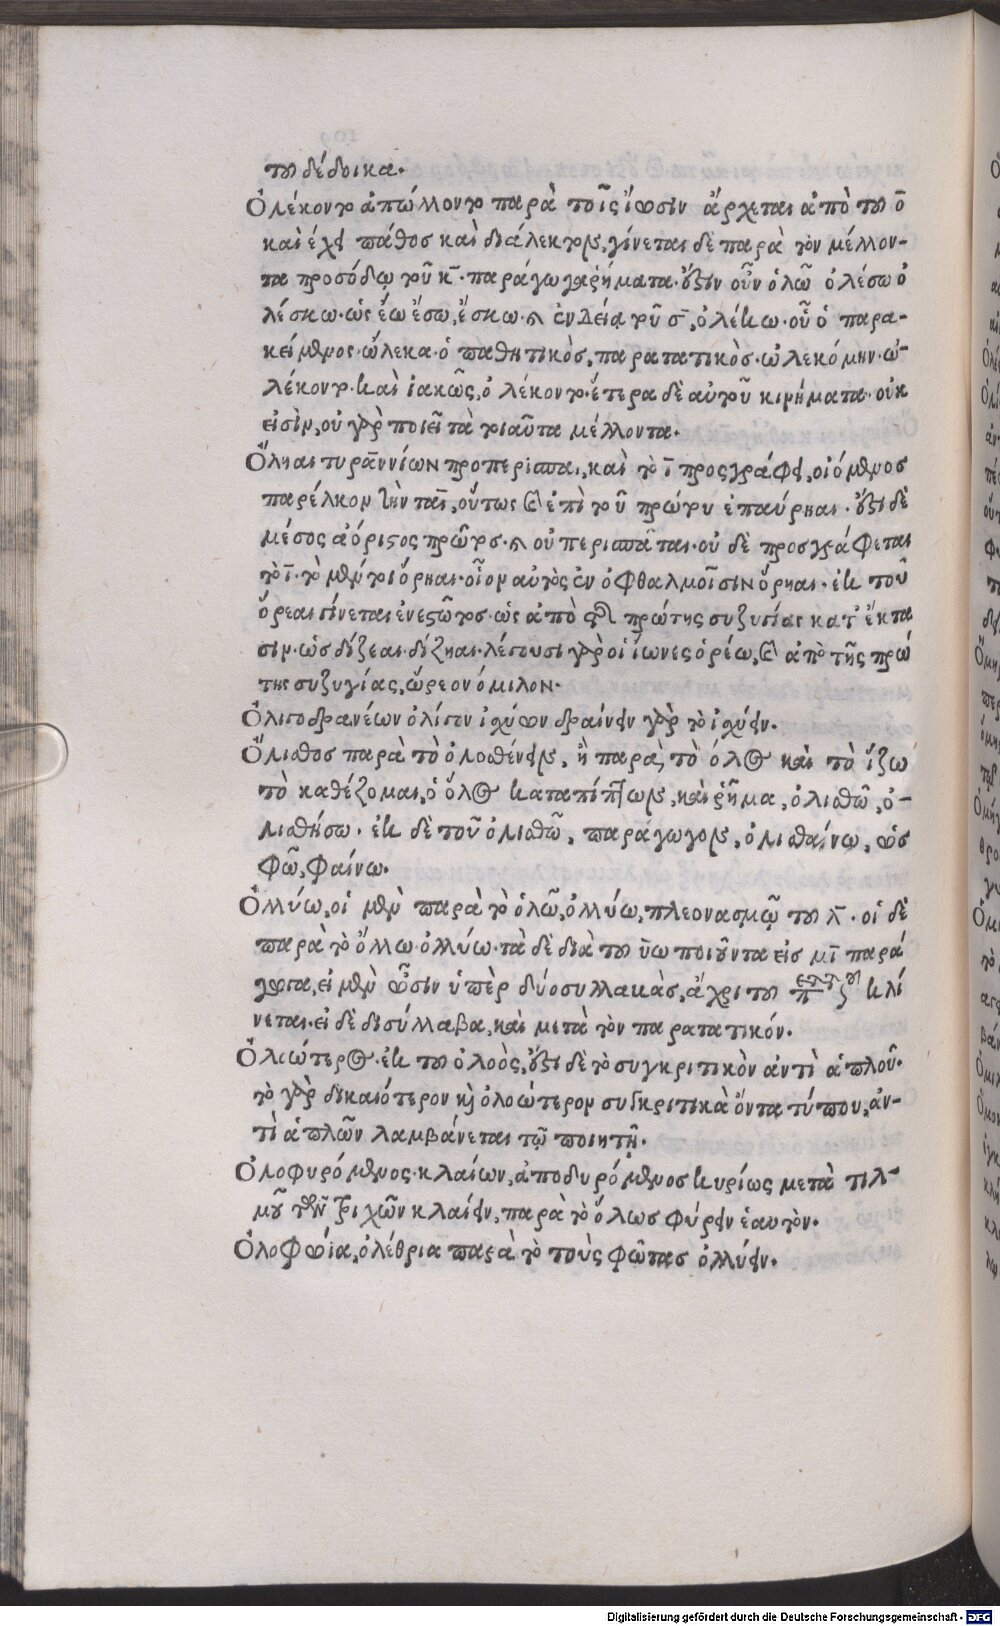 του δέδοικα.
Ὀλέκοντο ἀπώλλοντο παρὰ τοῖς ἴωσιν ἄρχεται ἀπὸ του ο̄
καὶ ἔχει πάθος καὶ διάλεκτος, γίνεται δὲ παρὰ τὸν μέλλον-
τα προσόδῳ τοῦ κ̄. παράγωγα ῥήματα. ἔστιν οὖν ὀλῶ ὀλέσω ὀ
λέσκω. ὡς ἔω ἔσω, ἔσκω. καὶ ἐνδείᾳ τοῦ σ̄, ὀλέκω. οὗ ὁ παρα-
κείμενος. ὤλεκα. ὁ παθητικὸς, παρατατικὸς. ὠλεκόμην. ὠ-
λέκοντο. καὶ ἰακῶς, ὀλέκοντο. ἕτερα δὲ αὐτοῦ κινήματα. οὐκ
εἰσὶν, οὐ γὰρ ποιεῖ τὰ τοιαῦτα μέλλοντα.
Ὄληαι τυραννίων προπερισπᾶι, καὶ τὸ ῑ προσγράφει, οἰόμενος
παρέλκειν τὴν ται, οὕτως καὶ ἐπὶ τοῦ πρώτου ἐπαύρηαι. ἔστι δὲ
μέσος ἀόριστος πρῶτος. καὶ οὐ περισπᾶται. οὐ δὲ προσγράφεται
τὸ ῑ. τὸ μέντοι ὄρηαι. οἷον αὐτὸς ἐν ὀφθαλμοῖσιν ὄρηαι. ἐκ τοῦ
ὄρεαι γίνεται ἐνεστῶτος. ὡς ἀπὸ τῆς πρώτης συζυγίας κατ' ἔκτα
σιν. ὡς δίζεαι. δίζηαι. λέγουσι γὰρ οἱ ἴωνες ὁρέω, καὶ ἀπὸ τῆς πρώ
της συζυγίας, ὥρεον ὅμιλον.
Ὀλιγοδρανέων ὀλίγον ἰσχύων δραίνειν γὰρ τὸ ἰσχύειν.
Ὄλισθος παρὰ τὸ ὀλοσθένειος, ἢ παρὰ τὸ ὅλος καὶ τὸ ἵζω
τὸ καθέζομαι, ὁ ὅλος καταπίπτων, καὶ ῥῆμα, ὀλισθῶ, ὀ-
λισθήσω. ἐκ δὲ τοῦ ὀλισθῶ, παράγωγος, ὀλισθαίνω, ὡς
φῶ, φαίνω.
Ὀλλύω, οἱ μὲν παρὰ τὸ ὀλῶ, ὀλλύω, πλεονασμῷ του λ̄. οἱ δὲ
παρὰ τὸ ὄλλω. ὀλλύω. τὰ δὲ διὰ του ῡω ποιοῦντα εἰς μῑ παρά
γωγα, εἰ μὲν ὦσιν ὑπὲρ δύο συλλαβὰς, ἄχρι του κλί
νεται. εἰ δὲ δισύλλαβα, καὶ μετὰ τὸν παρατατικόν.
Ὀλοώτερος. ἐκ του ὀλοὸς, ἔστι δὲ τὸ συγκριτικὸν ἀντὶ ἁπλοῦ.
τὸ γὰρ δικαιότερον καὶ ὀλοώτερον συγκριτικὰ ὄντα τύπου, ἀν-
τὶ ἁπλῶν λαμβάνεται τῷ ποιητῇ.
Ὀλοφυρόμενος. κλαίων, ἀποδυρόμενος κυρίως μετὰ τιλ-
μοῦ τῶν τριχῶν κλαίειν, παρὰ τὸ ὅλως φύρειν ἑαυτὸν.
Ὀλοφώϊα, ὀλέθρια παρὰ τὸ τοὺς φῶτας ὀλλύειν.
Digitalisierung gefördert durch die Deutsche Forschungsgemeinschaft - DFG